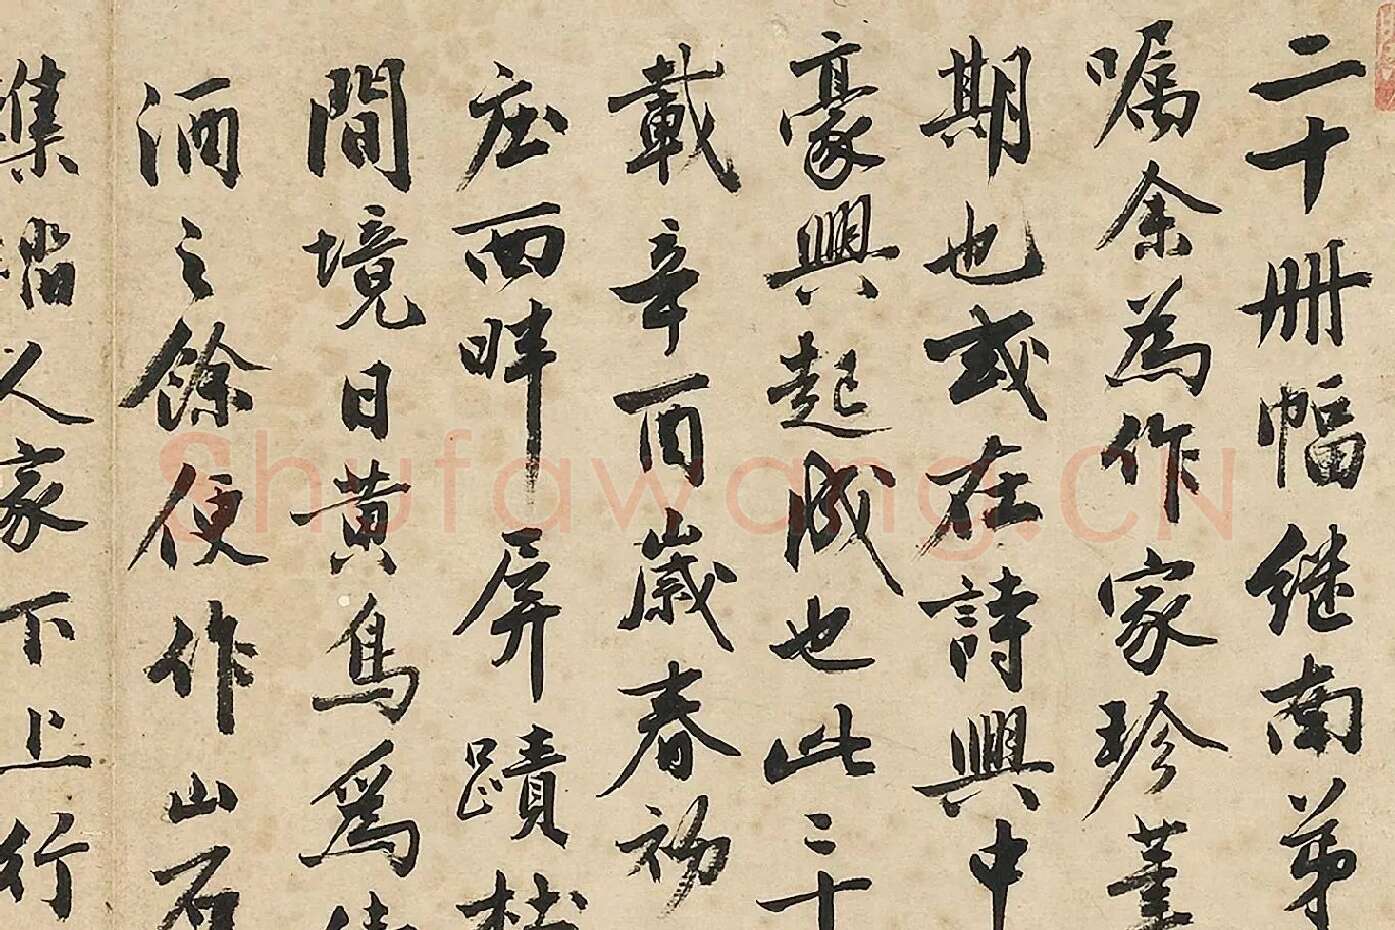 二十冊幅继南弟
嘱余為作家珍董
期也或在詩興中
豪興起成也此二十
載辛酉歲春初
莊西畔屏蹟杜
間境日黄鳥爲
酒之餘便作山石
集
人家下上行
Shufawang.CN